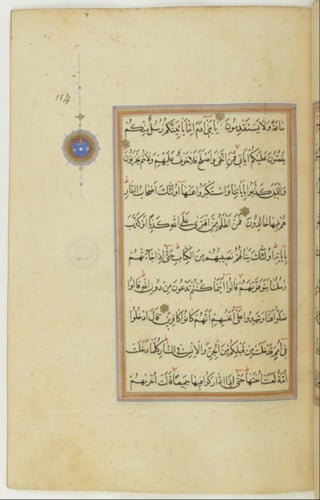 ساعة ولا يستقدمون يا بني آدم إما يأتينكم رسل منكم
يقصون عليكم آياتي فمن اتقى وأصلح فلا خوف عليهم ولا هم يحزنون
والذين كذبوا بآياتنا واستكبروا عنها أولئك أصحاب النار
هم فيها خالدون فمن أظلم ممن افترى على الله كذبا أو كذب
بآياته أولئك ينالهم نصيبهم من الكتاب حتى إذا جاءتهم
رسلنا يتوفونهم قالوا أينما كنتم تدعون من دون الله قالوا
ضلوا عنا وشهدوا على أنفسهم أنهم كانوا كافرين قال ادخلوا
في أمم قد خلت من قبلكم من الجن والإنس في النار كلما دخلت
أمة لعنت أختها حتى إذا اداركوا فيها جميعا قالت أخريهم